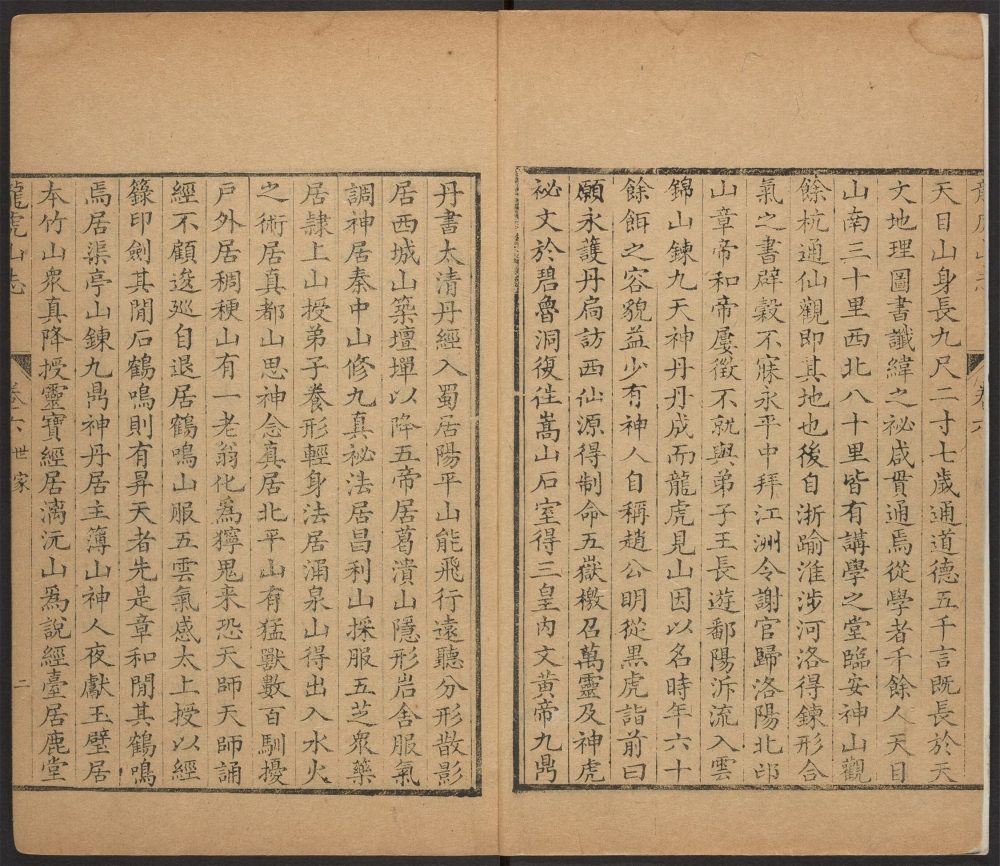 天目山身長九尺二寸七歲通道德五千言既長於天
文地理圖書讖緯之祕咸貫通焉從學者千餘人天目
山南三十里西北八十里皆有講學之堂臨安神山觀
餘杭通仙觀即其地也後自浙踰淮涉河洛得鍊形合
氣之書辟穀不寐永平中拜江洲令謝官歸洛陽北邙
山章帝和帝屢徵不就與弟子王長遊鄱陽泝流入雲
錦山鍊九天神丹丹成而龍虎見山因以名時年六十
餘餌之容貌益少有神人自稱趙公明從黑虎詣前曰
願永護丹扃訪西仙源得制命五嶽檄召萬靈及神虎
祕文於碧魯洞復徃嵩山石室得三皇內文黃帝九鼎
丹書太清丹經入蜀居陽平山能飛行遠聽分形散影
居西城山築壇墠以降五帝居葛潰山隱形岩舍服氣
調神居秦中山修九真祕法居昌利山採服五芝衆藥
居隷上山授弟子養形輕身法居涌泉山得出入水火
之術居真都山思神念真居北平山有猛獸數百馴擾
戶外居稠稉山有一老翁化爲獰鬼来恐天師天師誦
經不顧逡廵自退居鶴鳴山服五雲氣感太上授以經
籙印劍其閒石鶴鳴則有昇天者先是章和閒其鶴鳴
焉居渠亭山鍊九鼎神丹居主簿山神人夜獻玉璧居
本竹山衆真降授靈寶經居漓沅山爲說經臺居鹿堂
龍虎山志 卷之六 世家 二